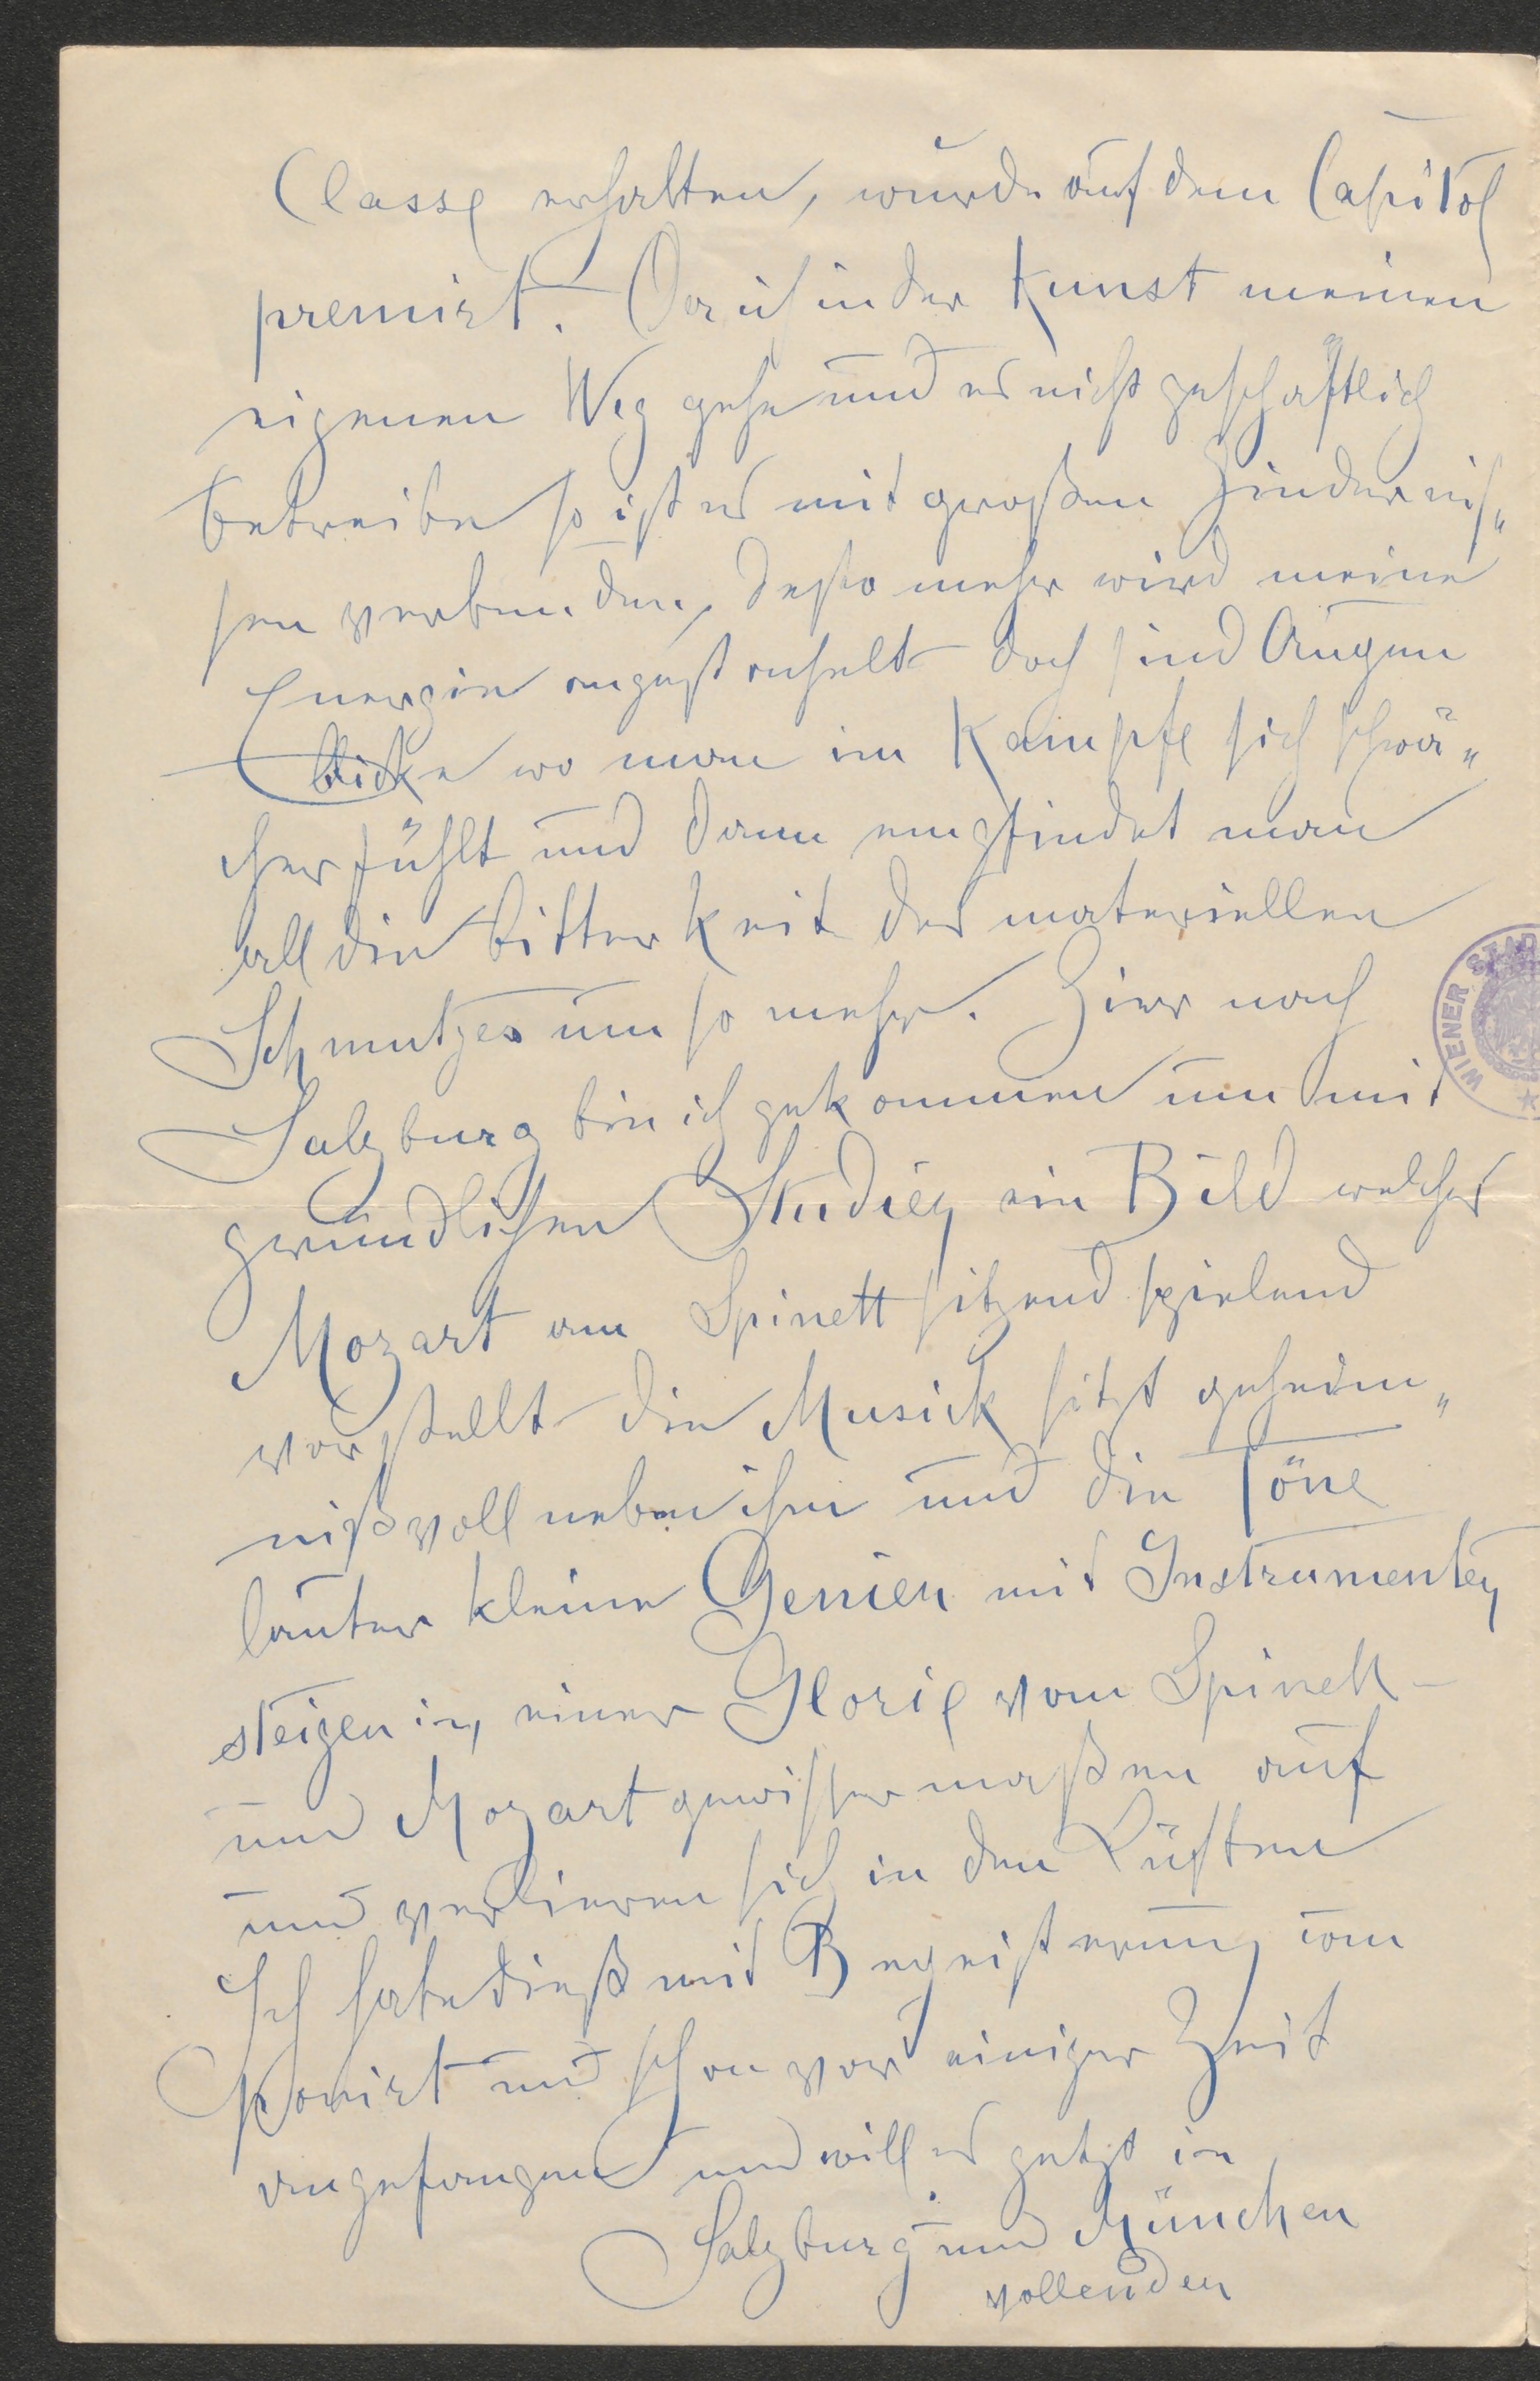 Classe erhalten, wurde auf dem Capitol
premirt. Da ich in der Kunst meinen
eigenen Weg gehe und es nicht geschäftlich
betreibe so ist es mit großen Hinderniß„
sen verbunden, desto mehr wird meine
Energie angestachelt doch sind Augen
blicke wo man im Kampfe sich schwä„
cher fühlt und dann empfindet man
all die Bitterkeit des materiellen
Schmutzes um so mehr. Hier nach
Salzburg bin ich gekommen um mit
gründlichen Studien ein Bild welches
Mozart am Spinett sitzend spielend
vorstellt die Musick sitzt geheim„
nißvoll neben ihm und die Töne
lauter kleine Genien mit Instrumenten
steigen in einer Glorie vom Spinett
und Mozart gewissermaßen auf
und verlieren sich in den Lüften
Ich habe dieß mit Begeisterung com
ponirt und schon vor einiger Zeit
angefangen und will es getzt in
Salzburg und München
vollenden
WIENER STAD